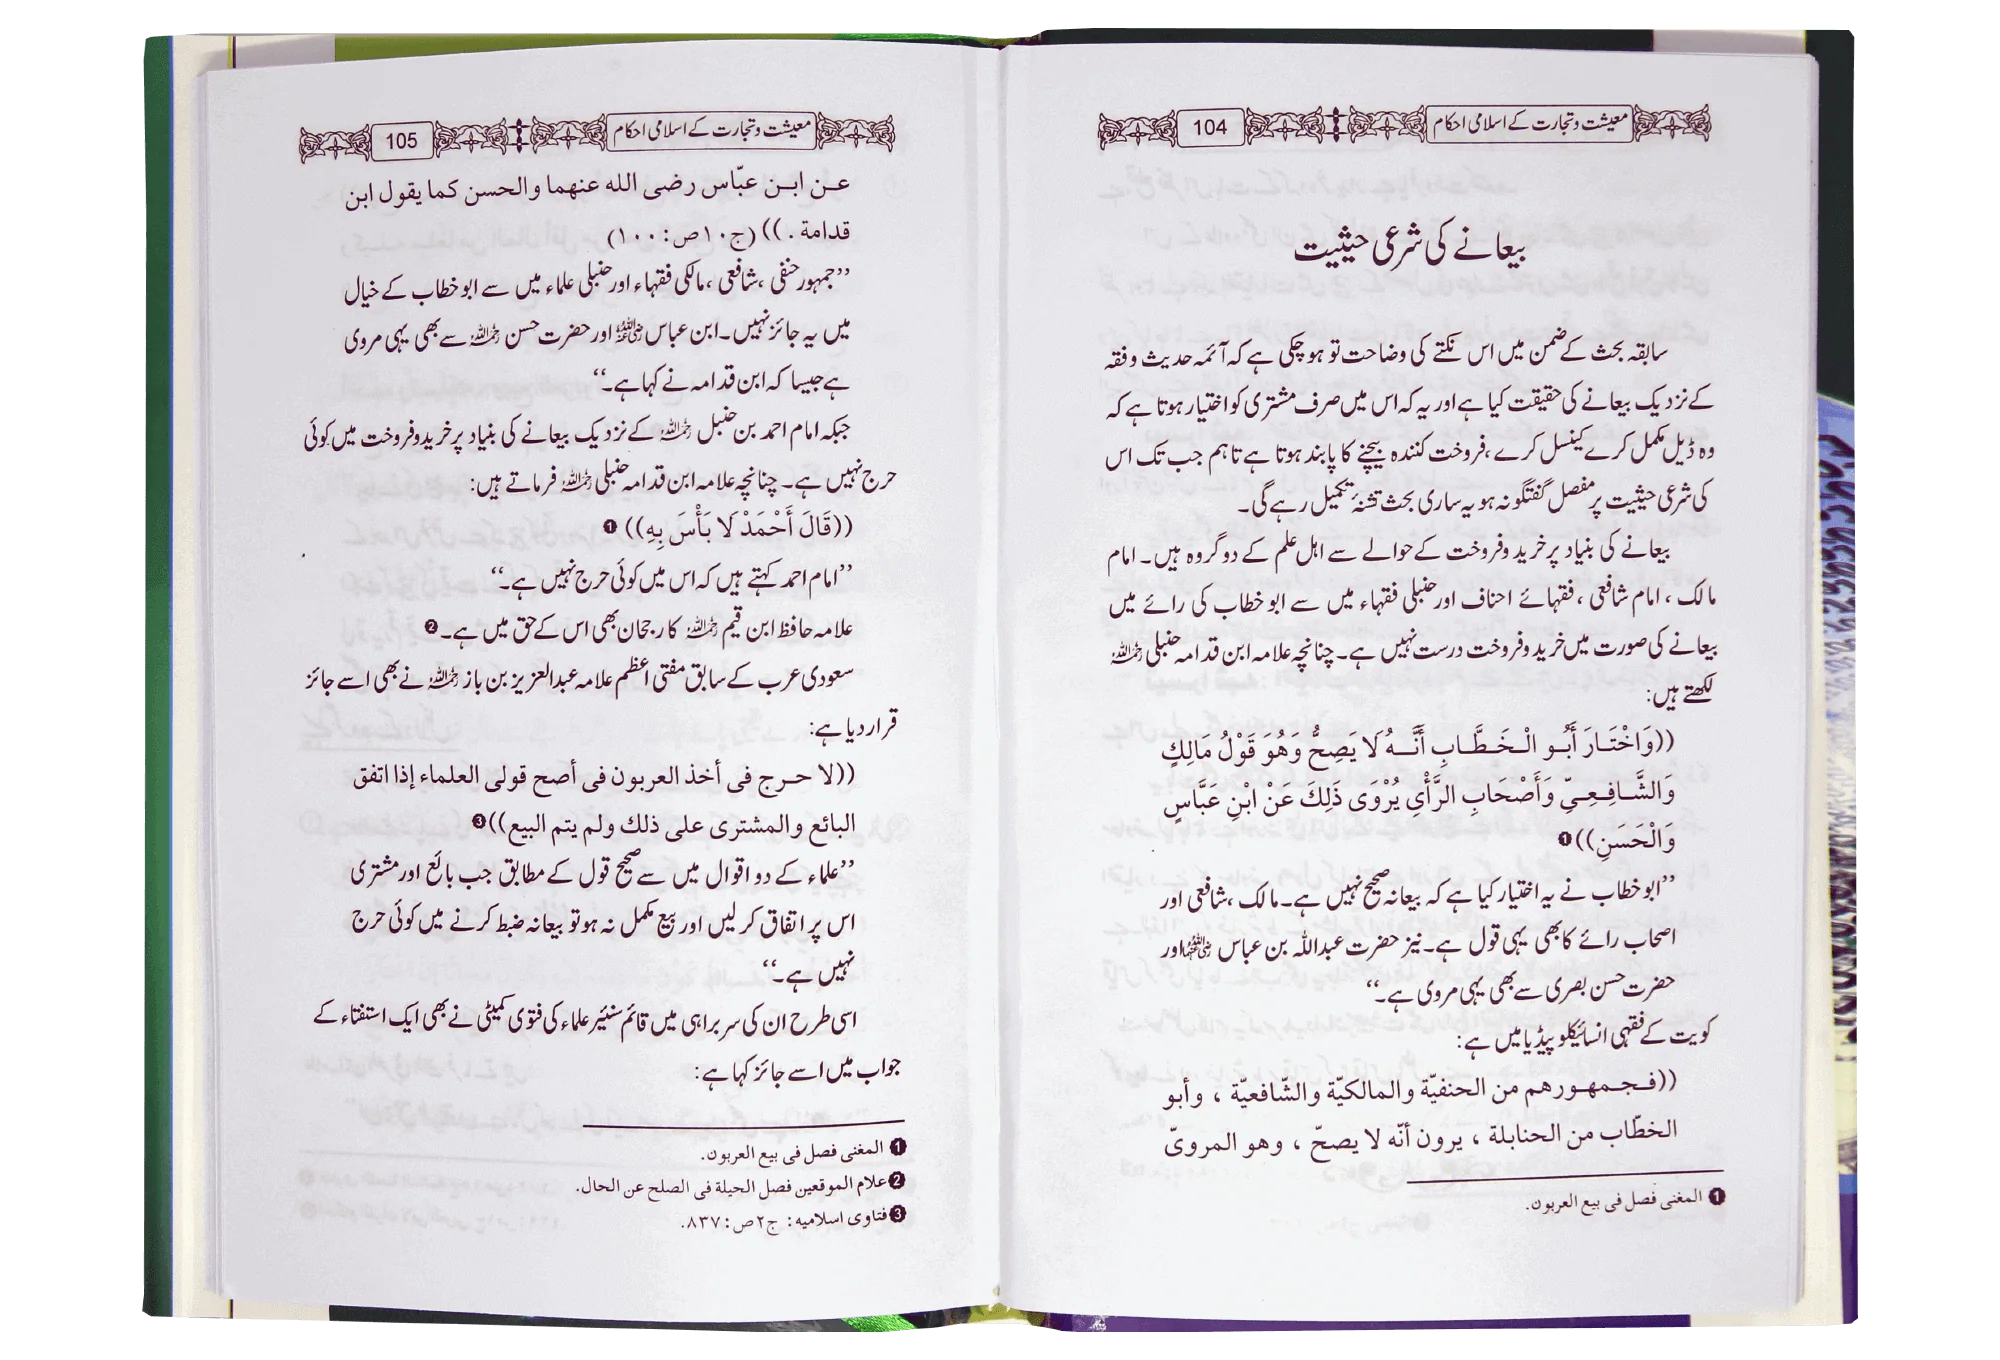 معیشت و تجارت کے اسلامی احکام 104
بیعانے کی شرعی حیثیت
سابقہ بحث کے ضمن میں اس نکتے کی وضاحت تو ہو چکی ہے کہ آئمہ حدیث و فقہ
کے نزدیک بیعانے کی حقیقت کیا ہے اور یہ کہ اس میں صرف مشتری کو اختیار ہوتا ہے کہ
وہ ڈیل مکمل کرے کینسل کرے، فروخت کنندہ بیچنے کا پابند ہوتا ہے تاہم جب تک اس
کی شرعی حیثیت پر مفصل گفتگو نہ ہو یہ ساری بحث تشنۂ تکمیل رہے گی۔
بیعانے کی بنیاد پر خرید و فروخت کے حوالے سے اہل علم کے دو گروہ ہیں۔ امام
مالک، امام شافعی، فقہائے احناف اور حنبلی فقہاء میں سے ابو خطاب کی رائے میں
بیعانے کی صورت میں خرید و فروخت درست نہیں ہے۔ چنانچہ علامہ ابن قدامہ حنبلی رحمہ اللہ
لکھتے ہیں:
((وَاخْتَـارَ أَبُـو الْـخَـطَّـابِ أَنَّـهُ لَا يَصِحُّ وَهُوَ قَوْلُ مَالِكٍ
وَالشَّـافِـعِـيِّ وَأَصْحَابِ الرَّأْيِ يُرْوَى ذَلِكَ عَنْ ابْنِ عَبَّاسٍ
وَالْحَسَنِ))❶
’’ابو خطاب نے یہ اختیار کیا ہے کہ بیعانہ صحیح نہیں ہے۔ مالک، شافعی اور
اصحاب رائے کا بھی یہی قول ہے۔ نیز حضرت عبداللہ بن عباس رضی اللہ عنہما اور
حضرت حسن بصری سے بھی یہی مروی ہے۔‘‘
کویت کے فقہی انسائیکلو پیڈیا میں ہے:
((فـجـمـهـورهم من الحنفيّة والمالكيّة والشّافعيّة ، وأبو
الخطّاب من الحنابلة ، يرون أنّه لا يصحّ ، وهو المروىّ
❶ المغنى فصل فى بيع العربون.
معیشت و تجارت کے اسلامی احکام 105
عـن ابـن عبّاس رضى الله عنهما والحسن كما يقول ابن
قدامة .)) (ج۱۰ص:۱۰۰)
’’جمہور حنفی، شافعی، مالکی فقہاء اور حنبلی علماء میں سے ابو خطاب کے خیال
میں یہ جائز نہیں۔ ابن عباس رضی اللہ عنہ اور حضرت حسن رحمہ اللہ سے بھی یہی مروی
ہے جیسا کہ ابن قدامہ نے کہا ہے۔‘‘
جبکہ امام احمد بن حنبل رحمہ اللہ کے نزدیک بیعانے کی بنیاد پر خرید و فروخت میں کوئی
حرج نہیں ہے۔ چنانچہ علامہ ابن قدامہ حنبلی رحمہ اللہ فرماتے ہیں:
((قَالَ أَحْمَدْ لَا بَأْسَ بِهِ))❶
’’امام احمد کہتے ہیں کہ اس میں کوئی حرج نہیں ہے۔‘‘
علامہ حافظ ابن قیم رحمہ اللہ کا رجحان بھی اس کے حق میں ہے۔❷
سعودی عرب کے سابق مفتی اعظم علامہ عبدالعزیز بن باز رحمہ اللہ نے بھی اسے جائز
قرار دیا ہے:
((لا حـرج فى أخذ العربون فى أصح قولى العلماء إذا اتفق
البائع والمشترى على ذلك ولم يتم البيع))❸
’’علماء کے دو اقوال میں سے صحیح قول کے مطابق جب بائع اور مشتری
اس پر اتفاق کر لیں اور بیع مکمل نہ ہو تو بیعانہ ضبط کرنے میں کوئی حرج
نہیں ہے۔‘‘
اسی طرح ان کی سربراہی میں قائم سنئیر علماء کی فتوی کمیٹی نے بھی ایک استفتاء کے
جواب میں اسے جائز کہا ہے:
❶ المغنى فصل فى بيع العربون.
❷ علام الموقعين فصل الحيلة فى الصلح عن الحال.
❸ فتاوى اسلاميه: ج۲ص:۸۳۷.